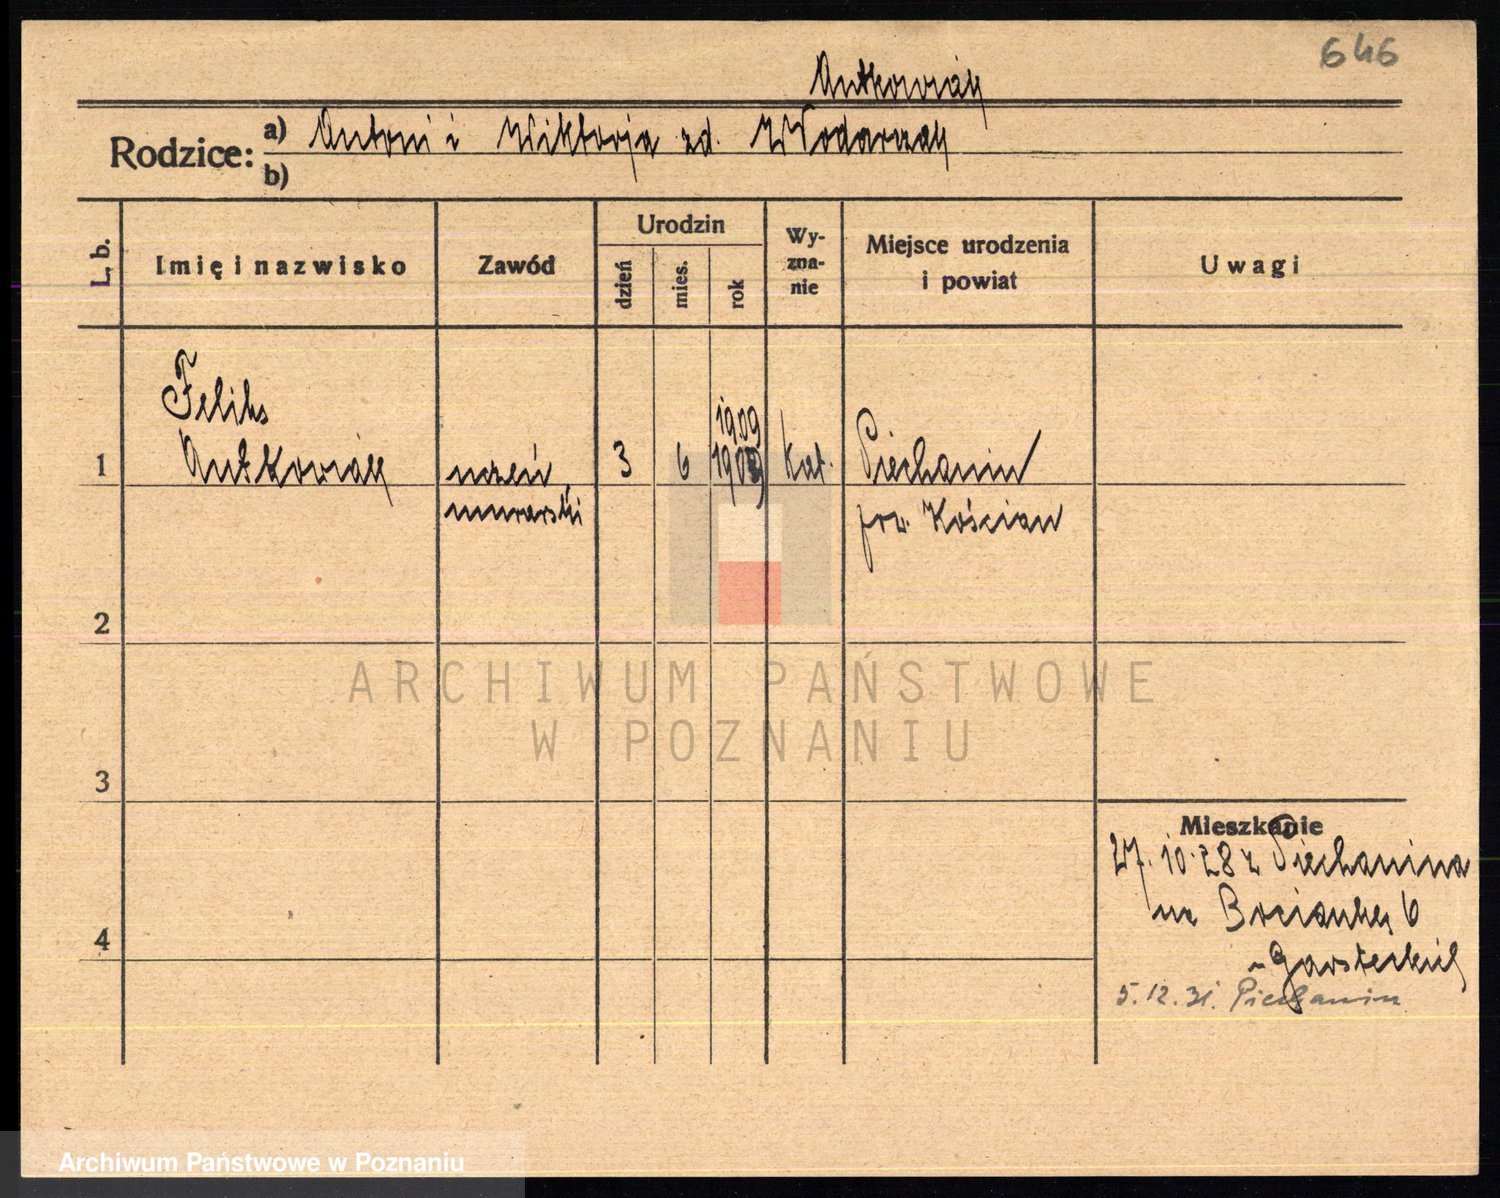 646
Antkowiak
Rodzice: a) Antoni i Wiktorja zd. Wodarczak
b)
L. b.
Imię i nazwisko
Zawód
Urodzin
dzień
mies.
rok
Wy-
zna-
nie
Miejsce urodzenia
i powiat
Uwagi
Feliks
1909
1 Antkowiak uczeń 3 6 kat. Piechanin
murarski pow. Kościan
2
ARCHIWUM PAŃSTWOWE
W POZNANIU
3
Mieszkanie
27.10.28 z Piechanina
na Bocianka 6
Garsteckich
4
5.12.31. Piechanin
Archiwum Państwowe w Poznaniu